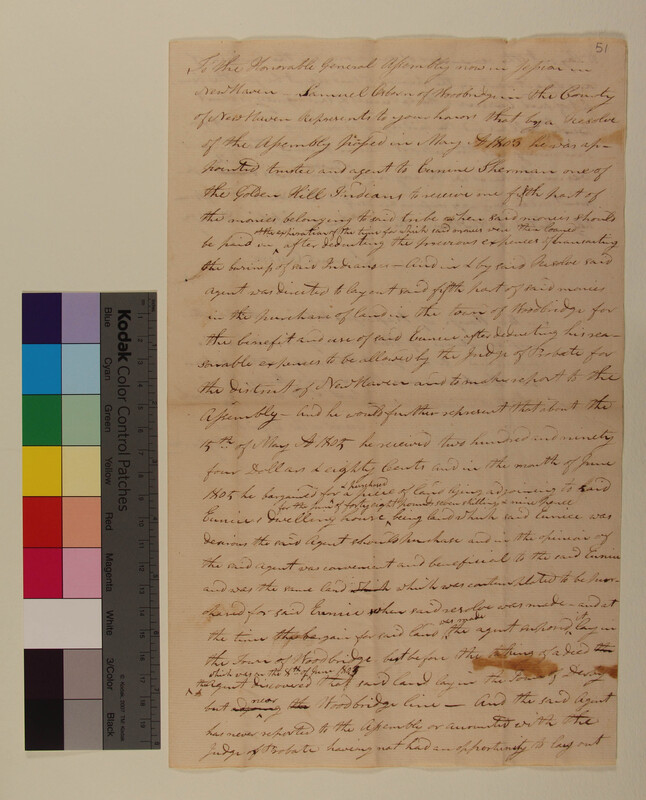 51
To the Honorable General Assembly now in session in
New Haven Samuel Osborn of Woodbridge in the County
of New Haven Represents to your honors that by a Resolve
of the Assembly passed in May AD 1803 he was ap-
pointed trustee and agent to Eunice Sherman one of
the Golden Hill Indians to receive one fifth part of
the monies belonging to said tribe when said monies should
at the expiration of the time for which said monies were then loaned
be paid in after deducting the previous expences of transacting
the business of said Indians — And in & by said Resolve said
agent was directed to lay out said fifth part of said monies
in the purchase of land in the Town of Woodbridge for
the benefit and use of said Eunice after deducting his rea-
sonable expences to be allowed by the Judge of Probate for
the District of New Haven and to make report to the
Assembly — And he would further represent that about the
15th of May AD 1805 he received two hundred and ninety
four Dollars & eighty Cents and in the month of June
1805 he bargained for & purchased a piece of land lying adjoining to said
for the sum of forty eight pounds seven shilling & nine pence
Eunice's dwelling house being land which said Eunice was
desirous the said Agent should purchase and in the opinion of
the said agent was convenient and beneficial to the said Eunice
and was the same land which was contemplated to be pur-
chased for said Eunice when said resolve was made — and at
was made it
the time the bargain for said land the agent supposed lay in
the Town of Woodbridge but before the taking of a deed
which was on the 8th of June 1805
the agent discovered that said land lay in the Town of Derby
near
but adjoining the Woodbridge line — And the said Agent
has never reported to the Assembly or accounted with the
Judge of Probate having not had an opportunity to lay out
Kodak Color Control Patches
Blue
Cyan
Green
Yellow
Red
Magenta
White
3/Color
Black